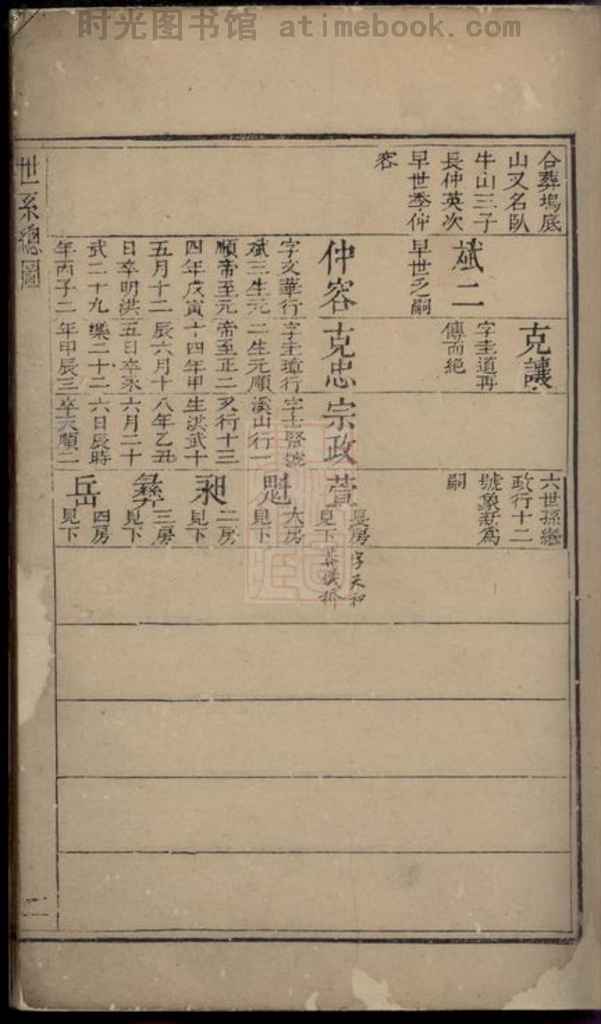 时光图书馆 atimebook.com
合葬塢底
山又名臥
牛山三子
長仲英次
早世季仲
容
斌二
早世乏嗣
仲容
字文華行
斌三生元
順帝至元
四年戊寅
五月十二
日卒明洪
武二十九
年丙子二
克讓
字圭道再
傳而絕
克忠
字圭璋行
二生元順
帝至正二
十四年甲
辰六月十
五日卒永
樂二十二
年甲辰三
宗政
字士賢號
溪山行一
又行十三
生洪武十
八年乙丑
六月二十
六日辰時
卒天順二
六世孫繼
政行十二
號象新為
嗣
萱
見下
字天和
魁
大房
見下
昶
二房
見下
彝
三房
見下
岳
四房
見下
世系總圖
二